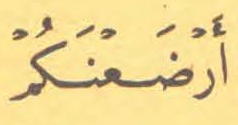 أَرْضَعْنَكُمْ